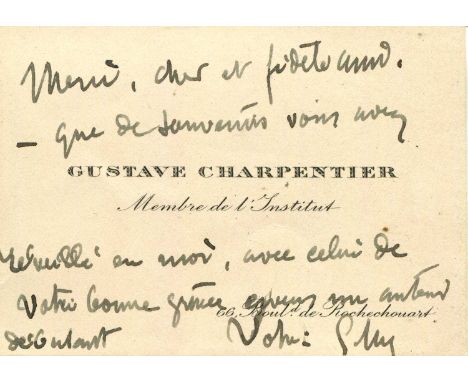 Merci, cher et fidèle ami.
— que de souvenirs vous avez
GUSTAVE CHARPENTIER
Membre de l'Institut
réveillé en moi, avec celui de
votre bonne grâce envers un auteur
66, Boul.ᵈ de Rochechouart
débutant Votre